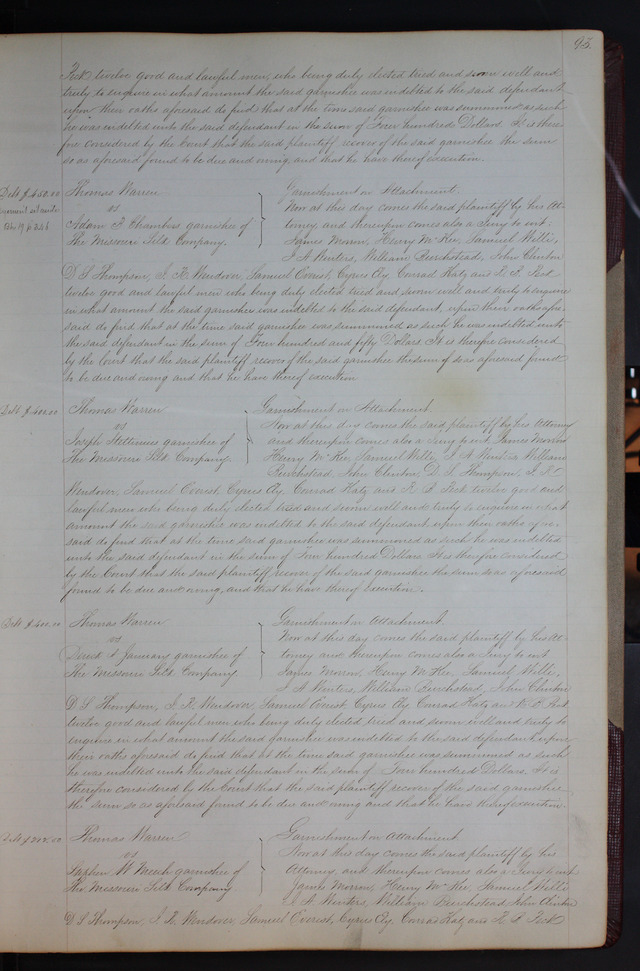 93.
Peck twelve good and lawful men, who being duly elected tried and sworn well and
truly to enquire in what amount the said garnishee was indebted to the said defendant
upon their oaths aforesaid do find that at the time said garnishee was summoned as such
he was indebted unto the said defendant in the sum of Four hundred Dollars. It is there-
fore considered by the Court that the said plaintiff recover of the said garnishee the sum
so as aforesaid found to be due and owing, and that he have thereof execution.
Debt $450.00
Thomas Warren
vs
Adam F Chambers garnishee of
The Missouri Silk Company.
Garnishment on Attachment.
Now at this day comes the said plaintiff by his At-
torney, and thereupon comes also a Jury to wit;
James Moron, Henry McKee, Samuel Wills,
J A Winters, William Berchstead, John Clinton
D S Thompson, J. R. Wendover, Samuel Cyrus Ely, Conrad Katz and R. P. Peck
twelve good and lawful men who being duly elected tried and sworn well and truly to enquire
in what amount the said garnishee was indebted to the said defendant, upon their oaths afore-
said do find that at the time said garnishee was summoned as such he was indebted unto
the said defendant in the sum of Four hundred and fifty Dollars It is therefore considered
by the Court that the said plaintiff recover of the said garnishee the sum so as aforesaid found
to be due and owing and that he have thereof execution
Debt $400.00
Thomas Warren
vs
Joseph Stettinius garnishee of
The Missouri Silk Company.
Garnishment on Attachment.
Now at this day comes the said plaintiff by his Attorney
and thereupon comes also a Jury to wit, James Moron
Henry McKee, Samuel Wills, J A Winters William
Berchstead, John Clinton, D. S. Thompson, J. R.
Wendover, Samuel Cyrus Ely, Conrad Katz, and R. P. Peck twelve good and
lawful men who being duly elected tried and sworn well and truly to enquire in what
amount the said garnishee was indebted to the said defendant, upon their oaths afore-
said do find that at the time said garnishee was summoned as such he was indebted
unto the said defendant in the sum of Four hundred Dollars It is therefore considered
by the Court that the said plaintiff recover of the said garnishee the sum so as aforesaid
found to be due and owing, and that he have thereof execution.
Debt $400.00
Thomas Warren
vs
Derick A January garnishee of
The Missouri Silk Company
Garnishment on Attachment
Now at this day comes the said plaintiff by his At-
torney and thereupon comes also a Jury to wit
James Moron, Henry McKee, Samuel Wills,
J A Winters, William Berchstead, John Clinton
D. S. Thompson, J. R. Wendover, Samuel Cyrus Ely, Conrad Katz and R. P. Peck
twelve good and lawful men who being duly elected tried and sworn well and truly to
enquire in what amount the said garnishee was indebted to the said defendant upon
their oaths aforesaid do find that at the time said garnishee was summoned as such
he was indebted unto the said defendant in the sum of Four hundred Dollars. It is
therefore considered by the Court that the said plaintiff recover of the said garnishee
the sum so as aforesaid found to be due and owing and that he have thereof execution.
Thomas Warren
vs
W Meech garnishee of
The Missouri Silk Company
Garnishment on Attachment
Now at this day comes the said plaintiff by his
Attorney and thereupon comes also a Jury to wit
James Moron, Henry McKee, Samuel Wills
J. A Winters, William Berchstead, John Clinton
D. S Thompson, J. R. Wendover, Samuel Cyrus Ely, Conrad Katz and R. P Peck